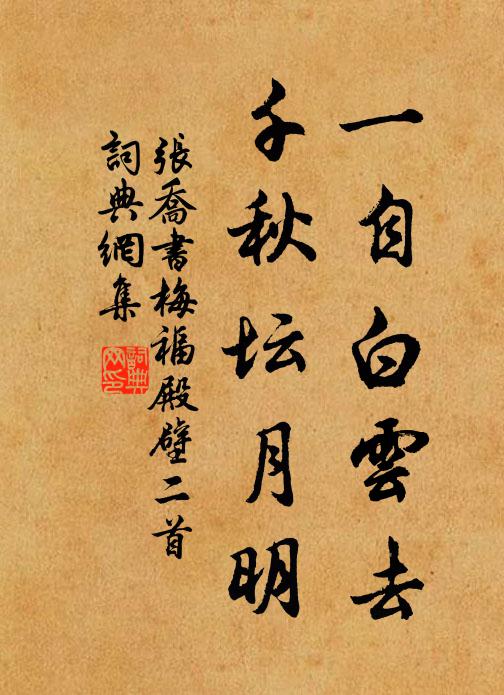 一自白雲去
千秋坛月明
張喬書梅福殿壁二首
詞典網集
詞典网印